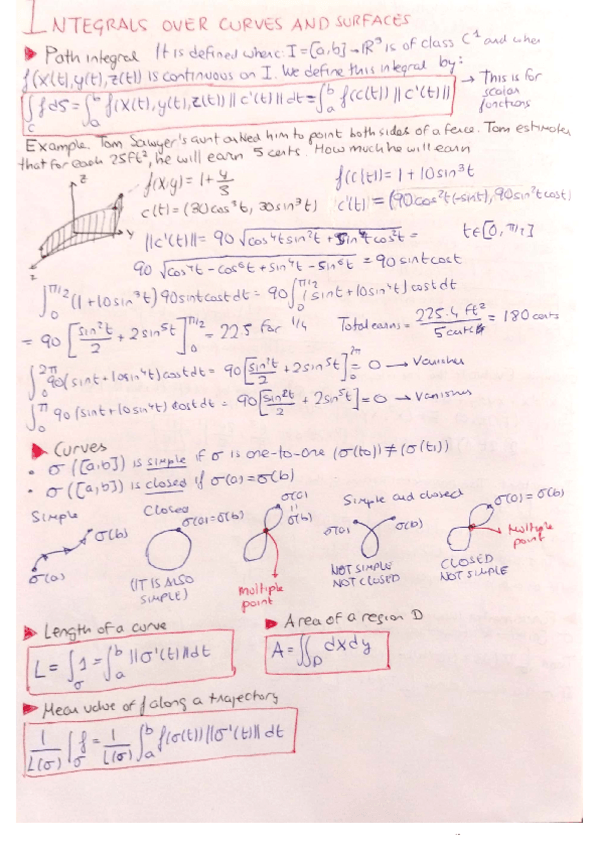 INTEGRALS OVER CURVES AND SURFACES
▶ Path integral It is defined when: I=[a,b]→ℝ³ is of class C¹ and when
f(x(t),y(t),z(t)) is continuous on I. We define this integral by:
∫_c f dS = ∫_a^b f(x(t),y(t),z(t)) ||c'(t)|| dt = ∫_a^b f(c(t)) ||c'(t)|| → This is for scalar functions
Example. Tom Sawyer's aunt asked him to paint both sides of a fence. Tom estimates
that for each 25ft², he will earn 5 cents. How much he will earn
z
y
f(x,y) = 1 + y/3
f(c(t)) = 1 + 10sin³t
c(t) = (30cos³t, 30sin³t) c'(t) = (90cos²t(-sint), 90sin²t cost)
||c'(t)|| = 90 √(cos⁴t sin²t + sin⁴t cos²t) = t∈[0, π/2]
90 √(cos⁴t - cos⁶t + sin⁴t - sin⁶t) = 90 sint cost
∫_0^{π/2} (1+10sin³t) 90sint cost dt = 90 ∫_0^{π/2} (sint + 10sin⁴t) cost dt
= 90 [sin²t/2 + 2sin⁵t]_0^{π/2} = 225 for 1/4 Total earns = 225·4 ft²/5 cents = 180 cents
∫_0^{2π} 90(sint + 10sin⁴t) cost dt = 90 [sin²t/2 + 2sin⁵t]_0^{2π} = 0 → Vanishes
∫_0^π 90(sint + 10sin⁴t) cost dt = 90 [sin²t/2 + 2sin⁵t] = 0 → Vanishes
▶ Curves
• σ([a,b]) is simple if σ is one-to-one (σ(t₀)) ≠ (σ(t₁))
• σ([a,b]) is closed if σ(a) = σ(b)
Simple
σ(a)
σ(b)
Closed
σ(a)=σ(b)
(IT IS ALSO
SIMPLE)
σ(a)
=
σ(b)
Multiple
point
Simple and closed
σ(a)
σ(b)
NOT SIMPLE
NOT CLOSED
σ(a) = σ(b)
Multiple
point
CLOSED
NOT SIMPLE
▶ Length of a curve
L = ∫_σ 1 = ∫_a^b ||σ'(t)|| dt
▶ Area of a region D
A = ∬_D dxdy
▶ Mean value of f along a trajectory
1/L(σ) ∫_σ f = 1/L(σ) ∫_a^b f(σ(t)) ||σ'(t)|| dt